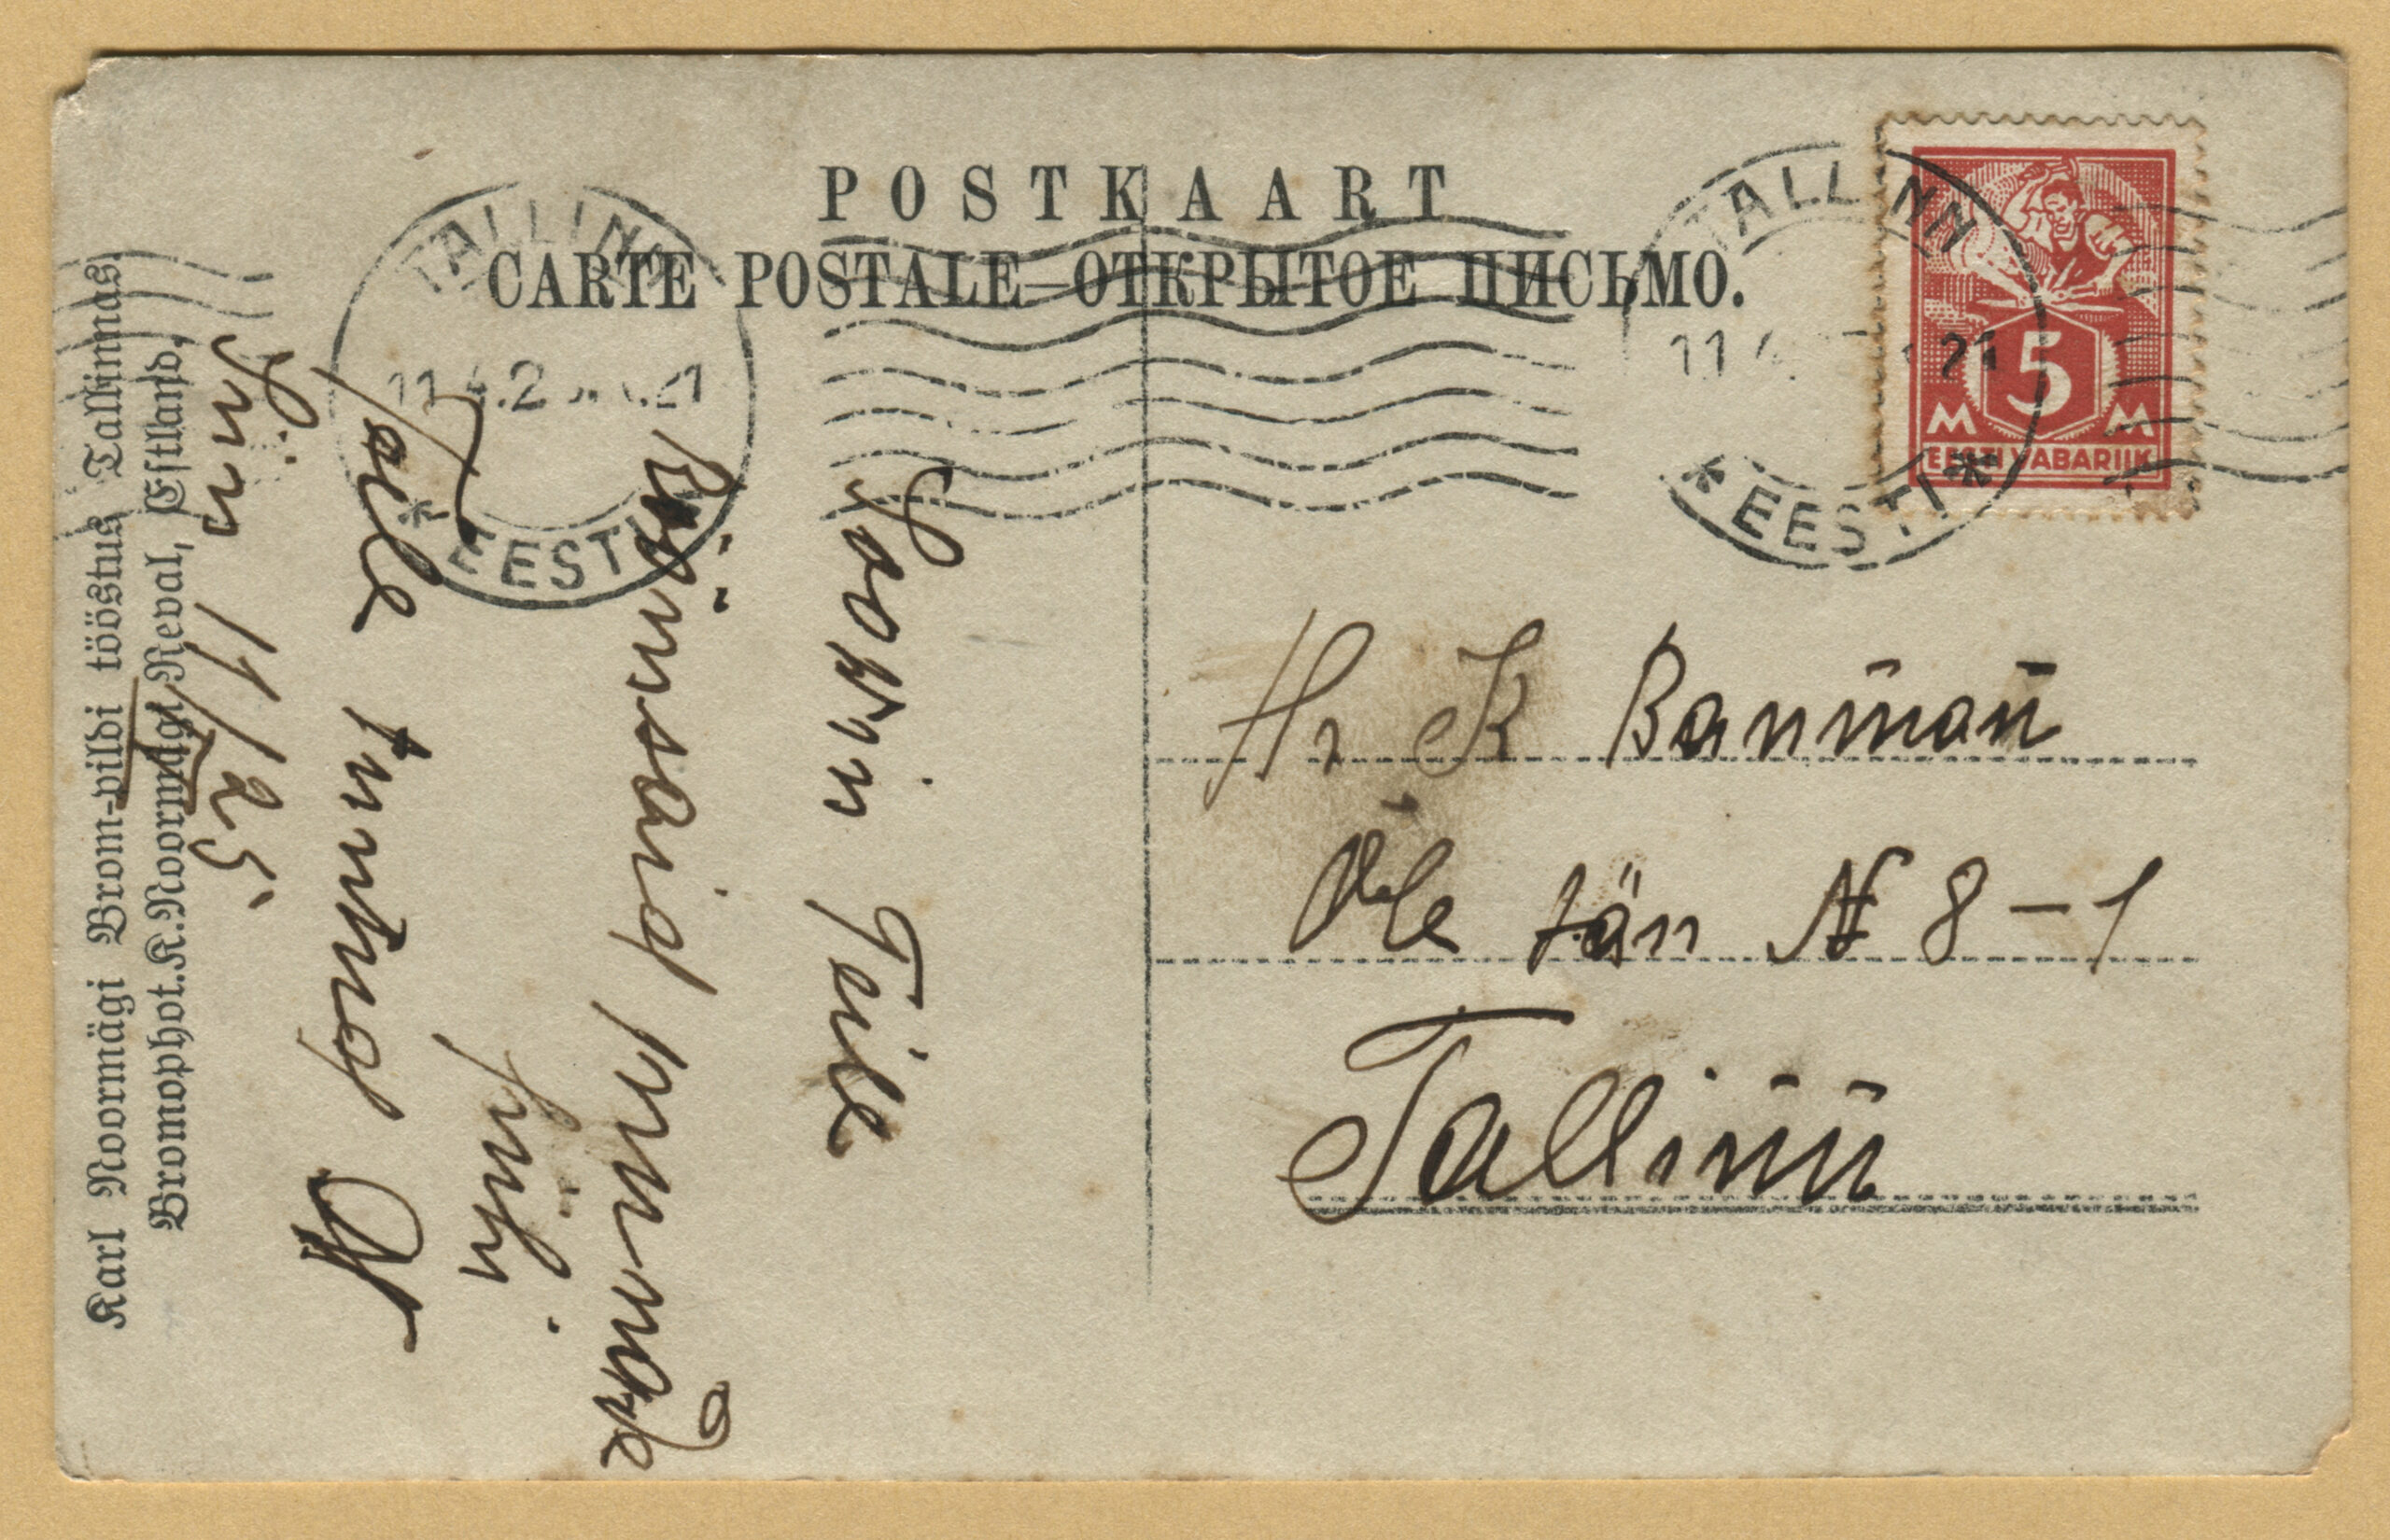 POSTKAART
CARTE POSTALE—ОТКРЫТОЕ ПИСЬМО.
TALLINN
11
21
* EESTI *
TALLINN
11
21
* EESTI *
5
M M
EESTI VABARIIK
Karl Noormägi Brom-pildi tööstus Tallinnas.
Bromophot. K. Noormägi, Reval, Estland.
Soovin Teile
Rõõmsaid
pühi.
Teile tuntud
11/25
Hr K Banm̄an̄
Õle tän № 8 – 1
Tallin̄n̄